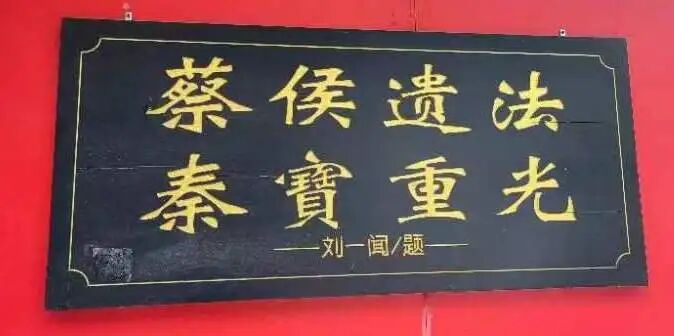 蔡侯遗法
秦寶重光
刘一闻/题